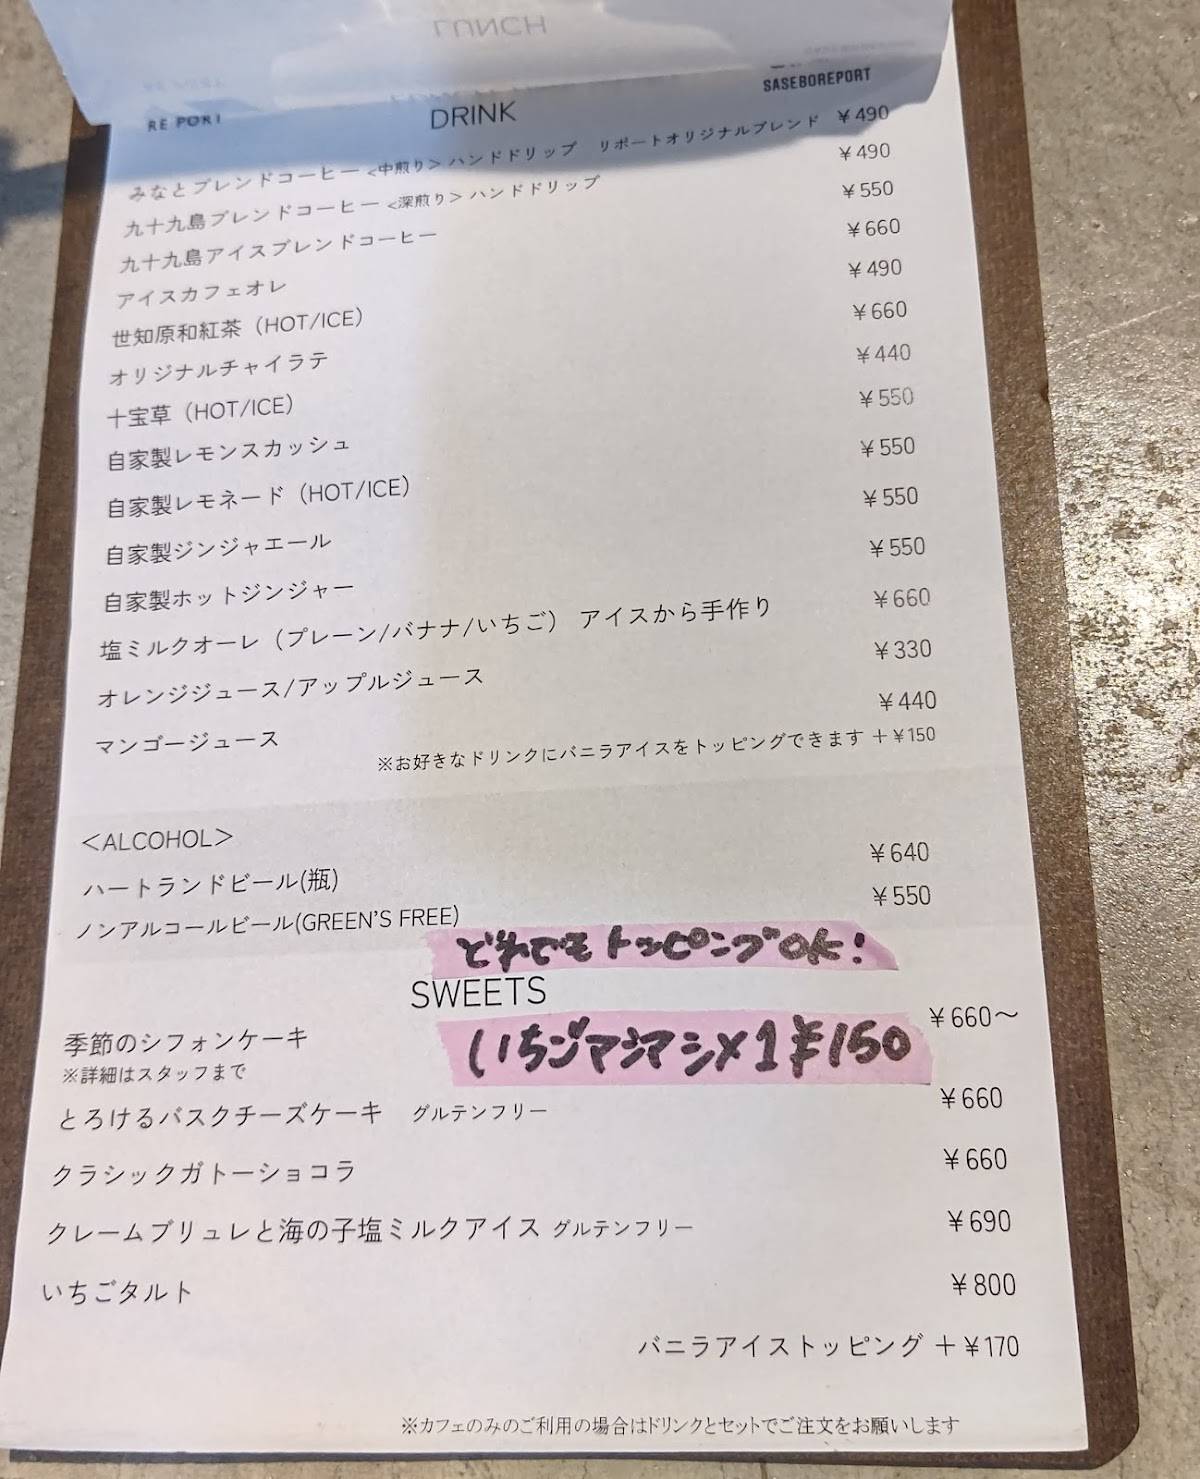 LUNCH
RE PORT
SASEBOREPORT
DRINK
みなとブレンドコーヒー <中煎り> ハンドドリップ リポートオリジナルブレンド ¥490
九十九島ブレンドコーヒー <深煎り> ハンドドリップ ¥490
九十九島アイスブレンドコーヒー ¥550
アイスカフェオレ ¥660
世知原和紅茶（HOT/ICE） ¥490
オリジナルチャイラテ ¥660
十宝草（HOT/ICE） ¥440
自家製レモンスカッシュ ¥550
自家製レモネード（HOT/ICE） ¥550
自家製ジンジャエール ¥550
自家製ホットジンジャー ¥550
塩ミルクオーレ（プレーン/バナナ/いちご） アイスから手作り ¥660
オレンジジュース/アップルジュース ¥330
マンゴージュース ¥440
※お好きなドリンクにバニラアイスをトッピングできます ＋¥150
＜ALCOHOL＞
ハートランドビール(瓶) ¥640
ノンアルコールビール(GREEN'S FREE) ¥550
どれでもトッピングOK!
SWEETS
いちごマシマシ×1 ¥150
季節のシフォンケーキ ¥660〜
※詳細はスタッフまで
とろけるバスクチーズケーキ グルテンフリー ¥660
クラシックガトーショコラ ¥660
クレームブリュレと海の子塩ミルクアイス グルテンフリー ¥690
いちごタルト ¥800
バニラアイストッピング ＋¥170
※カフェのみのご利用の場合はドリンクとセットでご注文をお願いします